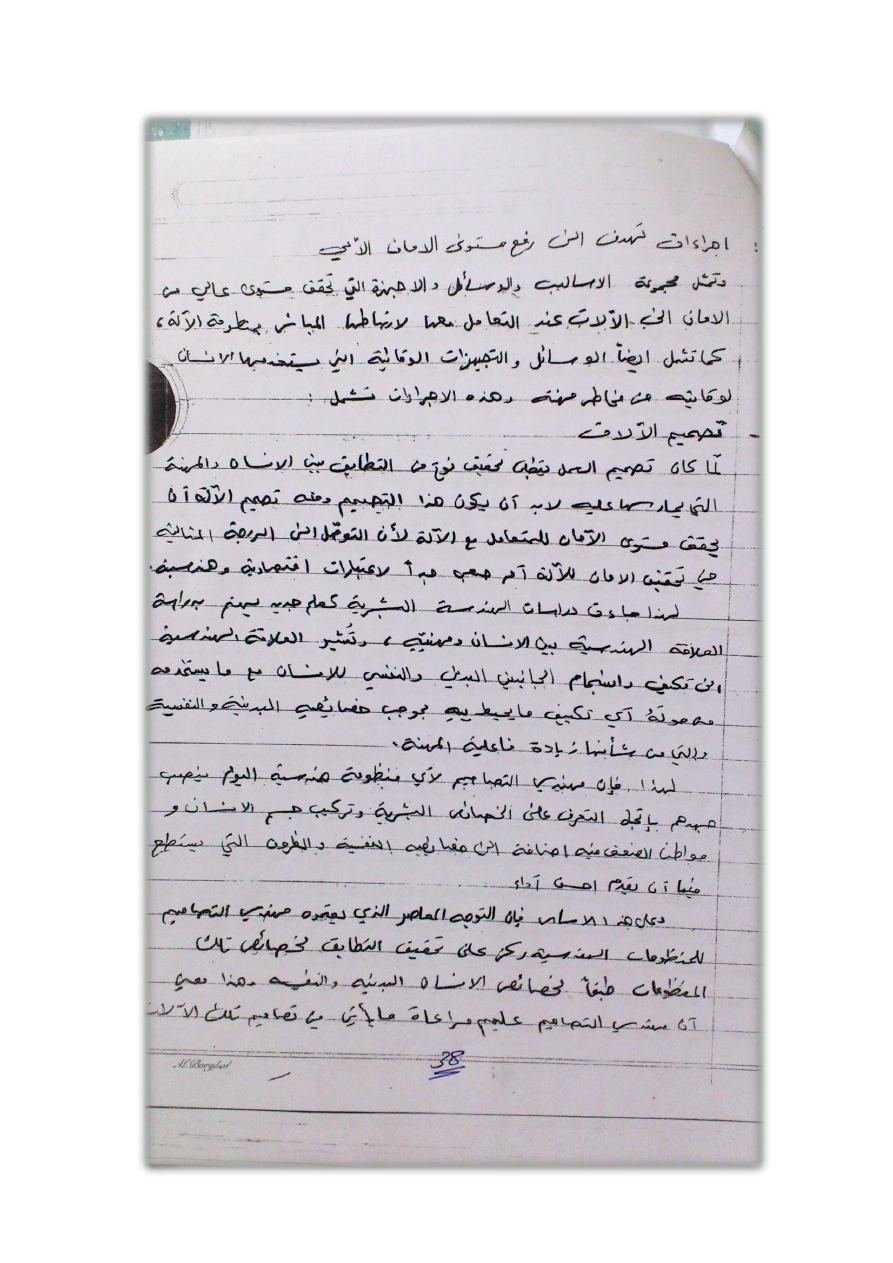 : اجراءات تهدف الى رفع مستوى الامان الآلي
وتمثل مجموعة الاساليب والوسائل والاجهزة التي تحقق مستوى عالي من
الامان الى الآلات عند التعامل معها لارتباطها المباشر بمنظومة الآلة ،
كما تشمل ايضاً الوسائل والتجهيزات الوقائية التي يستخدمها الانسان
لوقايته من مخاطر مهنة وهذه الاجراءات تشمل :
- تصميم الآلات
لمّا كان تصميم العمل يتطلب تحقيق نوع من التطابق بين الانسان والمهنة
التي يمارسها عليه لابد أن يكون هذا التصميم ومنه تصميم الآلة أن
يحقق مستوى الأمان للمتعامل مع الآلة لأن التوصّل الى الدرجة المثالية
في تحقيق الامان للآلة أمر صعب جداً لاعتبارات اقتصادية وهندسية.
لهذا جاءت دراسات الهندسة البشرية كعلم جديد يهتم بدراسة
العلاقة الهندسية بين الانسان ومهنته ، وتُشير العلاقة الهندسية
الى تكيف وانسجام الجانبين البدني والنفسي للانسان مع ما يستخدمه
من حوله أي تكييف ما يحيط به بموجب خصائصه البدنية والنفسية
والتي من شأنها زيادة فاعلية المهنة .
لهذا فإن مهندسي التصاميم لأي منظومة هندسية اليوم ينصب
جهدهم بإتجاه التعرف على الخصائص البشرية وتركيب جسم الانسان و
مواطن الضعف فيه اضافة الى خصائصه النفسية والظروف التي يستطيع
فيها أن يقدم احسن أداء
وعلى هذا الاساس فإن التوجه المعاصر الذي يعتمده مهندسي التصاميم
للمنظومات الهندسية يركز على تحقيق التطابق لخصائص تلك
المنظومات طبقاً لخصائص الانسان البدنية والنفسية وهذا يعني
أن مهندسي التصاميم عليهم مراعاة ما يأتي في تصاميم تلك الآلات
38
M.Borghol